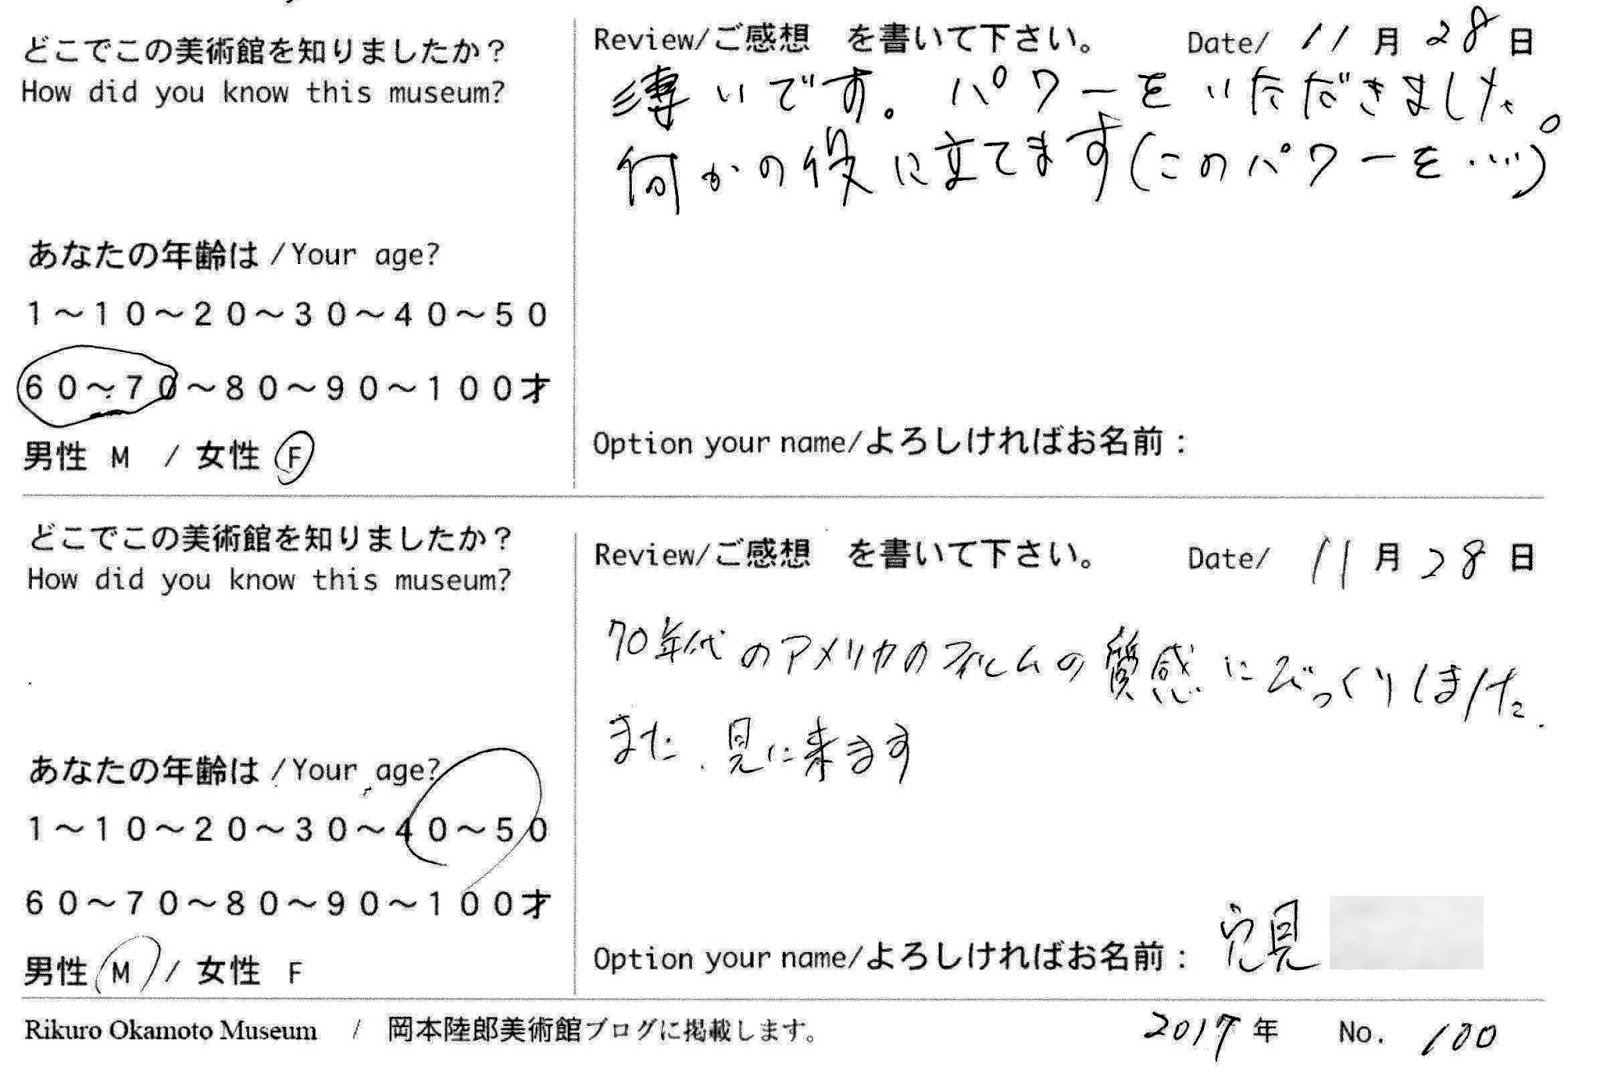 どこでこの美術館を知りましたか？
How did you know this museum?
あなたの年齢は /Your age?
1～10～20～30～40～50
60～70～80～90～100才
男性 M / 女性 F
Review/ご感想 を書いて下さい。 Date/ 11月28日
凄いです。パワーをいただきました。
何かの役に立てます(このパワーを…)
Option your name/よろしければお名前：
どこでこの美術館を知りましたか？
How did you know this museum?
あなたの年齢は /Your age?
1～10～20～30～40～50
60～70～80～90～100才
男性 M / 女性 F
Review/ご感想 を書いて下さい。 Date/ 11月28日
70年代のアメリカのフィルムの質感にびっくりしました.
また、見に来ます
Option your name/よろしければお名前： 穴見
Rikuro Okamoto Museum / 岡本陸郎美術館ブログに掲載します。 2017年 No. 100